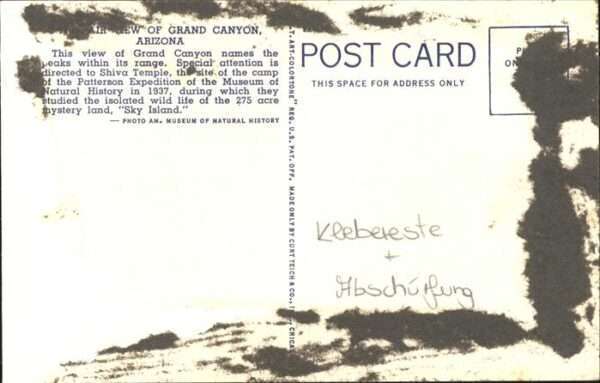 AIR VIEW OF GRAND CANYON,
ARIZONA
This view of Grand Canyon names the
peaks within its range. Special attention is
directed to Shiva Temple, the site of the camp
of the Patterson Expedition of the Museum of
Natural History in 1937, during which they
studied the isolated wild life of the 275 acre
mystery land, "Sky Island."
— PHOTO AM. MUSEUM OF NATURAL HISTORY
T. ART-COLORTONE" REG. U.S. PAT. OFF. MADE ONLY BY CURT TEICH & CO., CHICA
POST CARD
THIS SPACE FOR ADDRESS ONLY
P
ON
Klebereste
+
Abschürfung